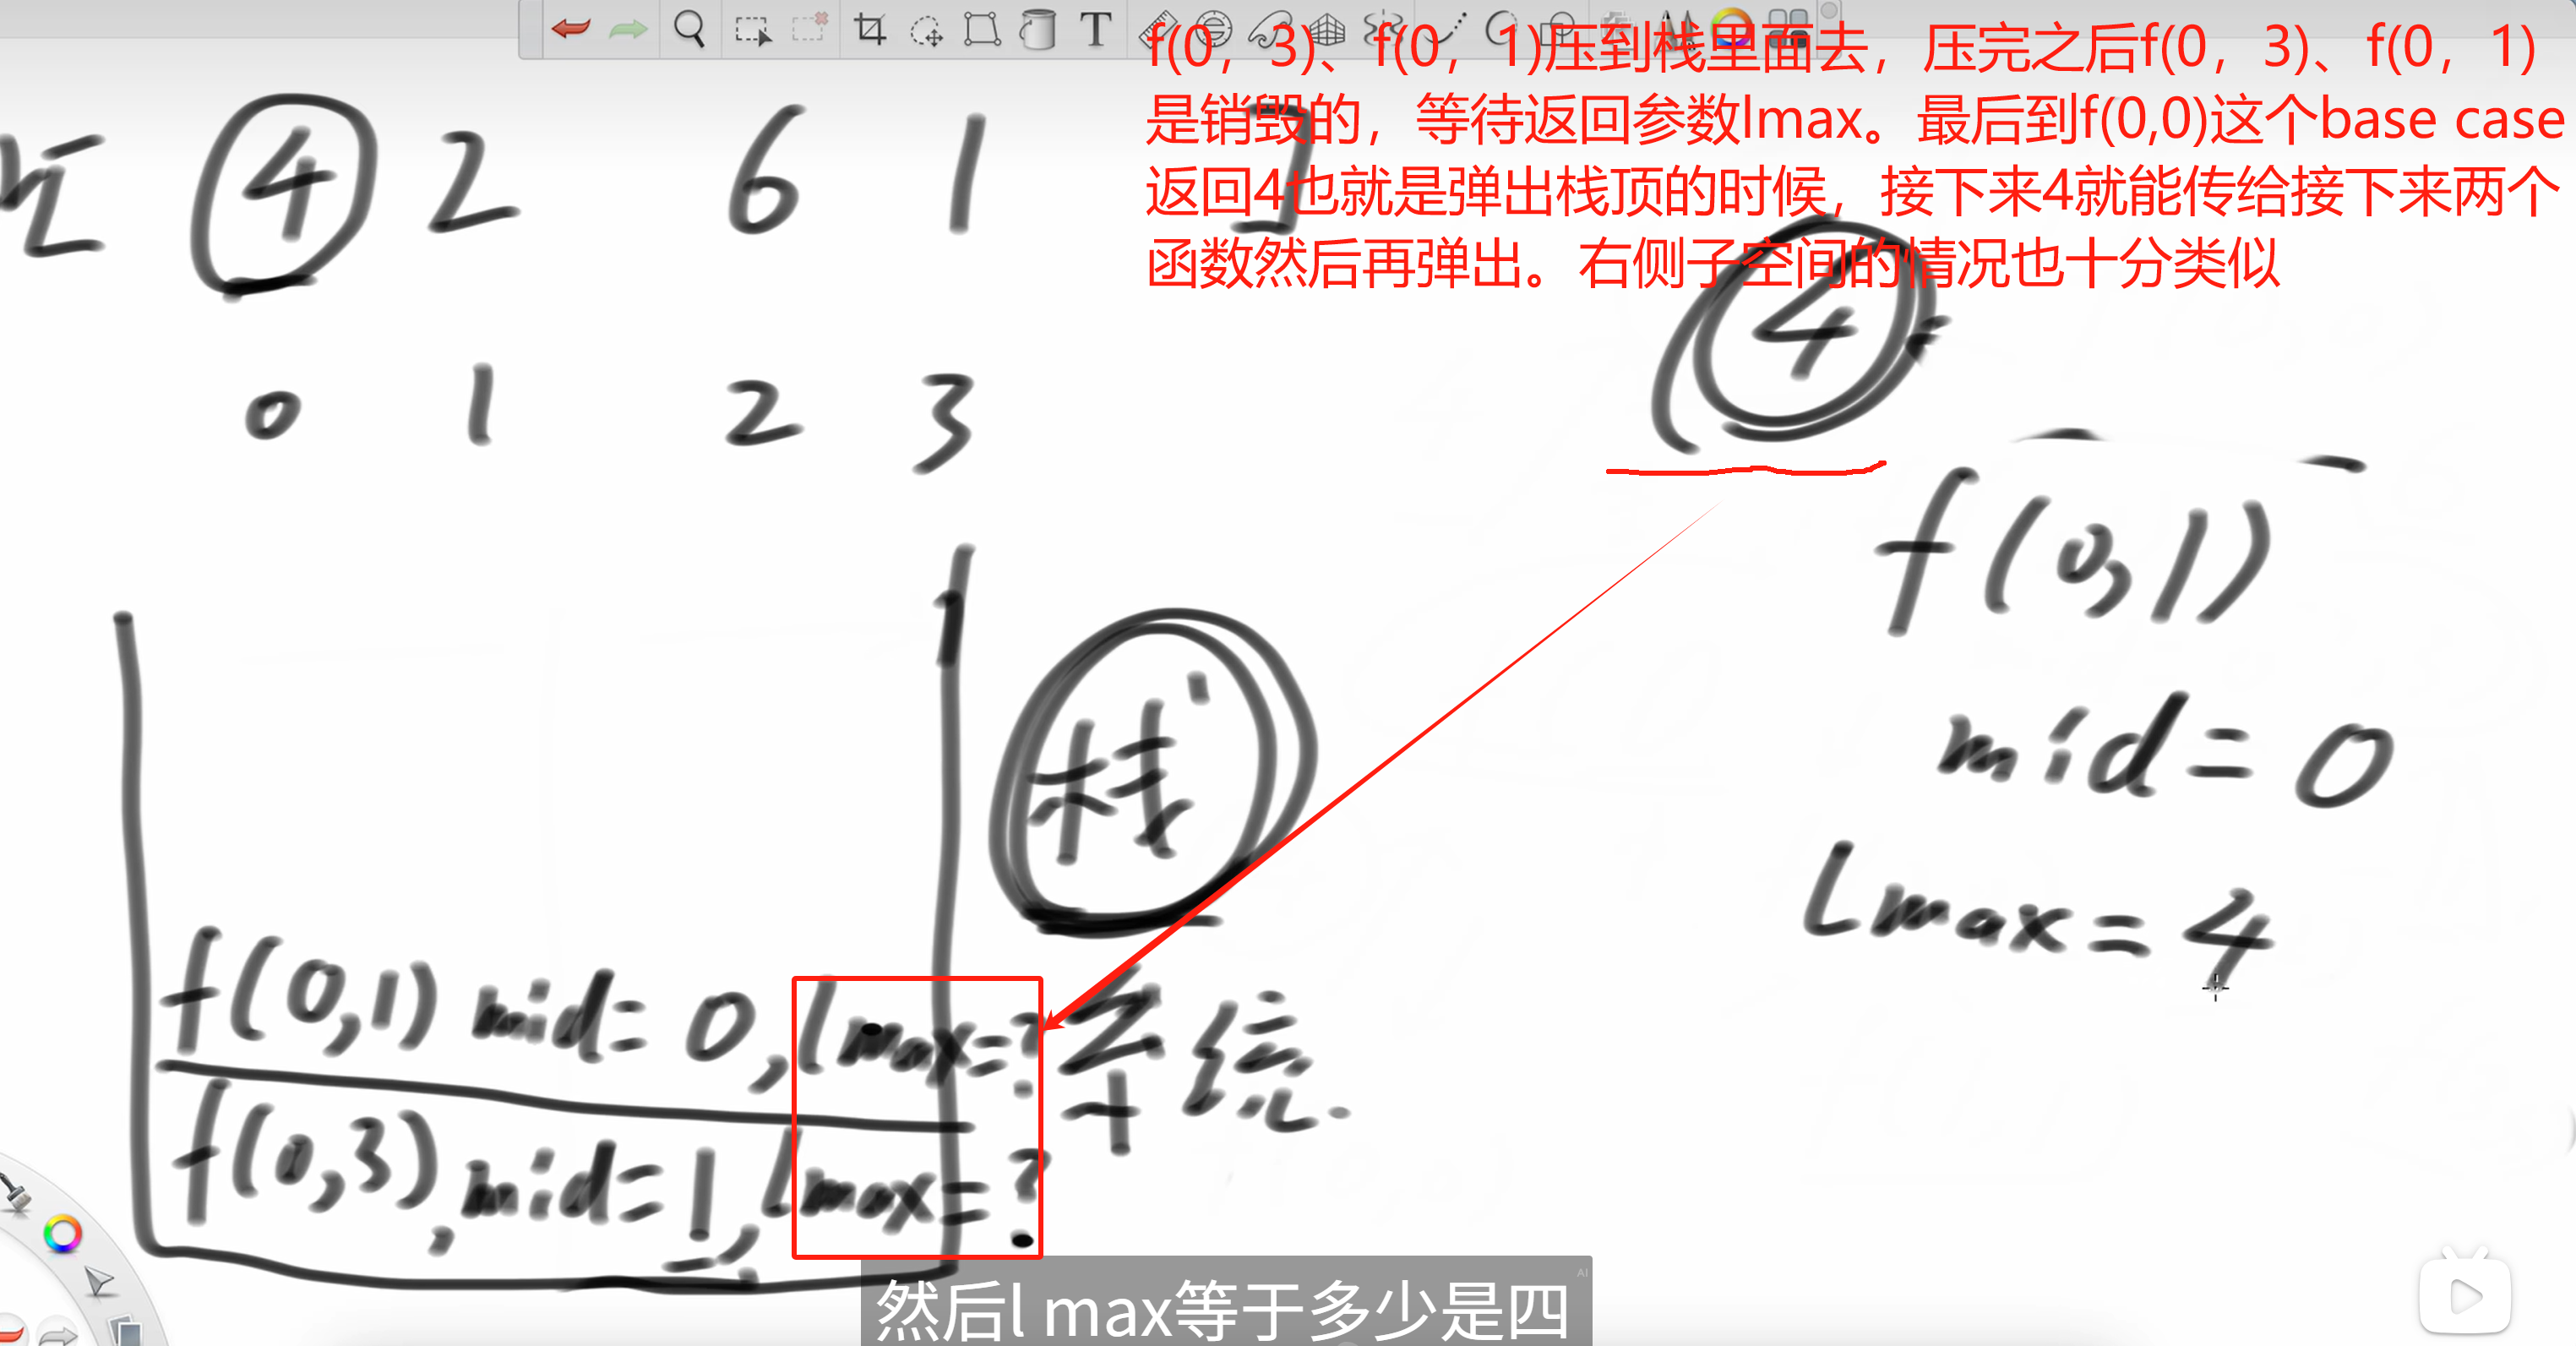 f(0，3)、f(0，1)压到栈里面去，压完之后f(0，3)、f(0，1)
是销毁的，等待返回参数lmax。最后到f(0,0)这个base case
返回4也就是弹出栈顶的时候，接下来4就能传给接下来两个
函数然后再弹出。右侧子空间的情况也十分类似
T
[ 4 2 6 1 ]
0 1 2 3
4
f(0,1)
mid=0
lmax=4
栈
系统
f(0,1) mid=0, lmax=?
f(0,3), mid=1, lmax=?
然后l max等于多少是四
AI